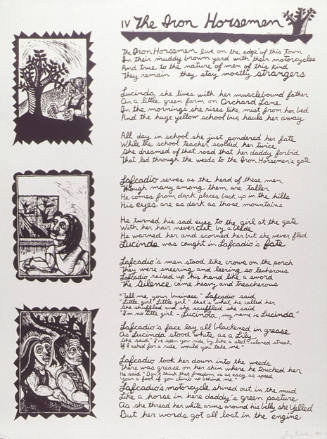 IV The Iron Horsemen
The Iron Horsemen live on the edge of this town
In their muddy brown yard with their motorcycles
And true to the nature of men of this kind
They remain they stay mostly strangers
Lucinda, she lives with her musclebound father
On a little green farm on Orchard Lane
In the mornings she rises like mist from her bed
And the huge yellow school bus hauls her away
All day in school she just pondered her fate
While the school teacher scolded her twice
She dreamed of that road that her daddy forbid
That led through the weeds to the Iron Horsemen's gate
Lafcadio serves as the head of these men
Though many among them are taller
He comes from dark places back up in the hills
His eyes are as dark as those mountains
He turned his sad eyes to the girl at the gate
With her hair never cut by a blade
He warned her and scorned her but she never fled
Lucinda was caught in Lafcadio's fate
Lafcadio's men stood like crows on the porch
They were sneering and leering, so lecherous
Lafcadio raised up his hand like a sword
The silence came heavy and treacherous
"Tell me your business" Lafcadio said
"Little girl, little girl" that's what he called her
She shuffled and she scuffled she said
"I'm no little girl Lucinda, my name is Lucinda"
Lafcadio's face lay all blackened in grease
As Lucinda stood white as a
She said "I've seen you ride by like a
I'd asked for a ride, would you take me"
Lafcadio took her down into the weeds
There was grease on her skin where he touched her
He said "Don't think that freedom is as easy as speed
Your a fool if you climb on behind me"
Lafcadio's motorcycle whined out in the mud
Like a horse in her daddy's green pasture
As she thread her white arms around his belly she yelled
But her words got all lost in the engine